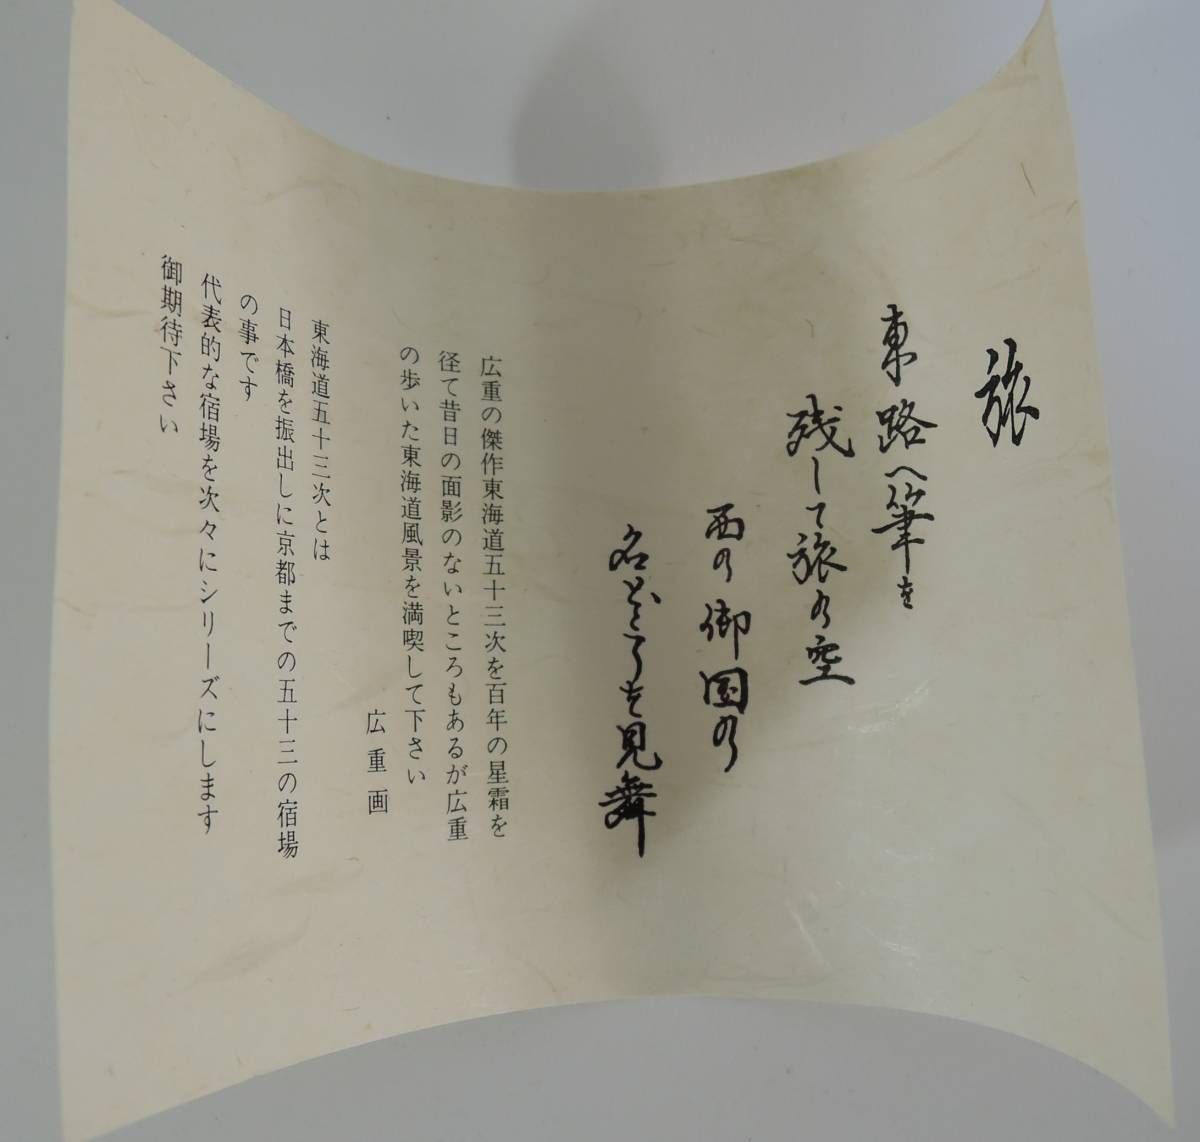 旅
東路へ筆を
残して旅の空
西の御国の
名どころを見舞
広重の傑作東海道五十三次を百年の星霜を
径て昔日の面影のないところもあるが広重
の歩いた東海道風景を満喫して下さい
広重画
東海道五十三次とは
日本橋を振出しに京都までの五十三の宿場
の事です
代表的な宿場を次々にシリーズにします
御期待下さい